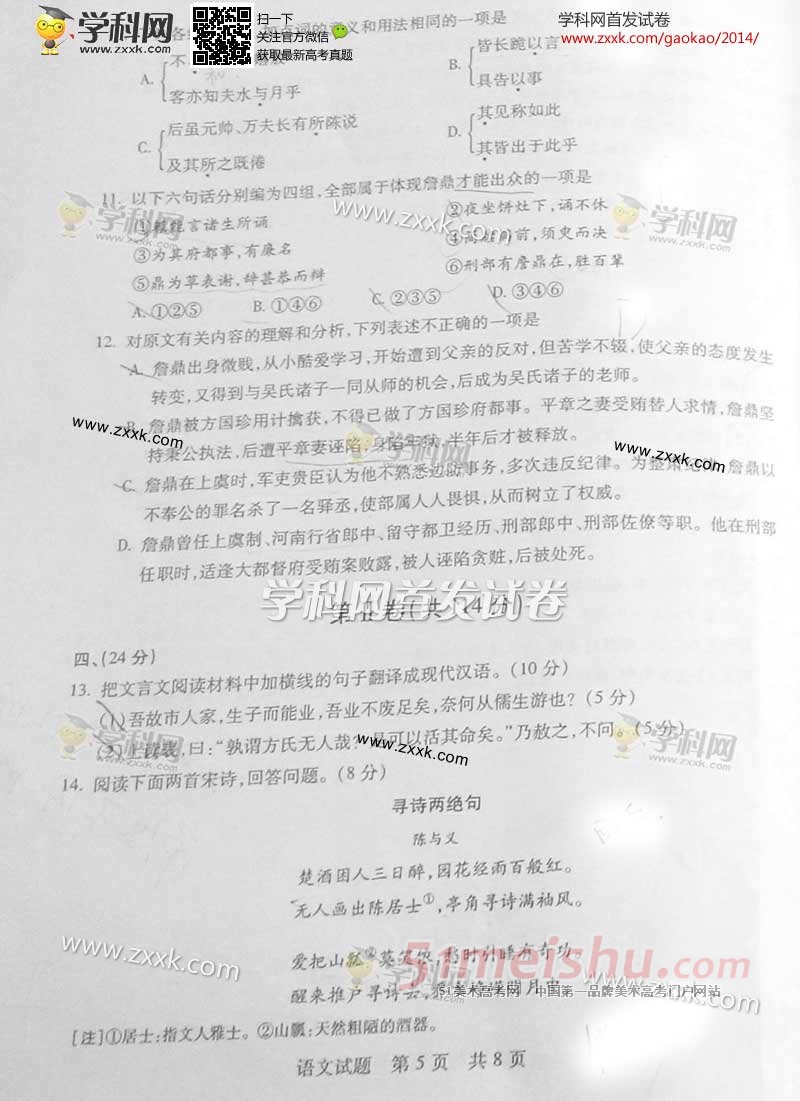 学科网
www.zxxk.com
扫一下
关注官方微信
获取最新高考真题
学科网首发试卷
www.zxxk.com/gaokao/2014/
词的意义和用法相同的一项是
A.
不
客亦知夫水与月乎
B.
皆长跪以言
具告以事
C.
后虽元帅、万夫长有所陈说
及其所之既倦
D.
其见称如此
其皆出于此乎
11. 以下六句话分别编为四组,全部属于体现詹鼎才能出众的一项是
言诸生所诵
②夜坐饼灶下,诵不休
③为其府都事,有廉名
前,须史而决
⑤鼎为草表谢,辞甚恭而辩
⑥刑部有詹鼎在,胜百辈
A. ①②⑤ B. ①④⑥ C. ②③⑤ D. ③④⑥
12. 对原文有关内容的理解和分析,下列表述不正确的一项是
A. 詹鼎出身微贱,从小酷爱学习,开始遭到父亲的反对,但苦学不辍,使父亲的态度发生
转变,又得到与吴氏诸子一同从师的机会,后成为吴氏诸子的老师。
B. 詹鼎被方国珍用计擒获,不得已做了方国珍府都事。平章之妻受贿替人求情,詹鼎坚
持秉公执法,后遭平章妻诬陷,身陷牢狱,半年后才被释放。
C. 詹鼎在上虞时,军吏贵臣认为他不熟悉边防事务,多次违反纪律。为整肃纪律,詹鼎以
不奉公的罪名杀了一名驿丞,使部属人人畏惧,从而树立了权威。
D. 詹鼎曾任上虞制、河南行省郎中、留守都卫经历、刑部郎中、刑部佐僚等职。他在刑部
任职时,适逢大都督府受贿案败露,被人诬陷贪赃,后被处死。
学科网首发试卷
第Ⅱ卷(共114分)
四、(24分)
13. 把文言文阅读材料中加横线的句子翻译成现代汉语。(10分)
(1)吾故市人家,生子而能业,吾业不废足矣,奈何从儒生游也?(5分)
(2)上读表,曰:“孰谓方氏无人哉?是可以活其命矣。”乃赦之,不问。(5分)
14. 阅读下面两首宋诗,回答问题。(8分)
寻诗两绝句
陈与义
楚酒困人三日醉,园花经雨百般红。
无人画出陈居士①,亭角寻诗满袖风。
爱把山瓢②莫笑侬,愁时引睡有奇功。
醒来推户寻诗去,
51meishu.com
51美术高考网 中国第一品牌美术高考门户网站
[注]①居士:指文人雅士。②山瓢:天然粗陋的酒器。
语文试题 第5页 共8页